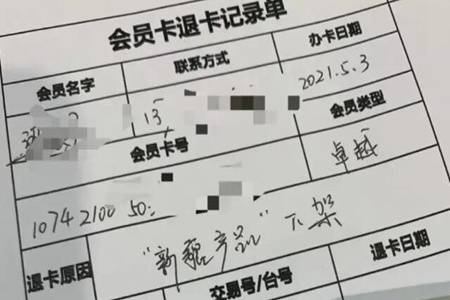 会员卡退卡记录单
会员名字 联系方式 办卡日期
13 2021.5.3
会员卡号 会员类型
1074 2100 50 卓越
退卡原因 "新疆产品"下架
交易号/台号 退卡日期